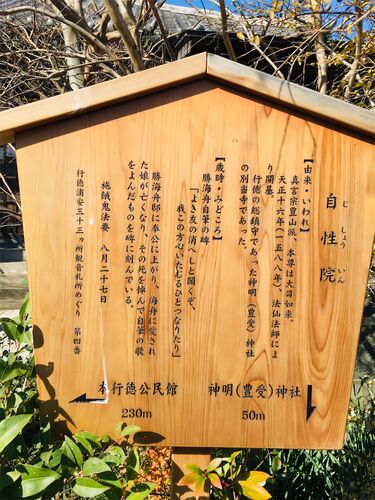 自性院
じしょういん
【由来・いわれ】
真言宗豊山派、本尊は大日如来。
天正十六年(一五八八年)、法仙法師によ
り開基。
行徳の総鎮守であった神明(豊受)神社
の別当寺であった。
【歳時・みどころ】
勝海舟自筆の碑
「よき友の消へしと聞くぞ、
我この方心いたむるひとつなりたり」
勝海舟邸に奉公に上がり、海舟に愛され
た娘が亡くなり、その死を悼んで自筆の歌
をよんだものを碑に刻んでいる。
施餓鬼法要 八月二十七日
行徳浦安三十三ヵ所観音札所めぐり 第四番
神明(豊受)神社
50m
本行徳公民館
230m